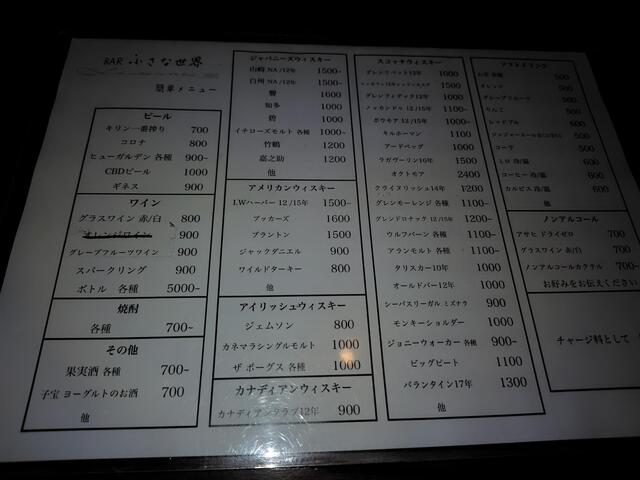 BAR 小さな世界
簡単メニュー
ビール
キリン一番搾り 700
コロナ 800
ヒューガルデン 各種 900~
CBDビール 1000
ギネス 900
ワイン
グラスワイン 赤/白 800
オレンジワイン 900
グレープフルーツワイン 900
スパークリング 900
ボトル 各種 5000~
焼酎
各種 700~
その他
果実酒 各種 700~
子宝 ヨーグルトのお酒 700
他
ジャパニーズウィスキー
山崎 NA/12年 1500~
白州 NA/12年 1500~
響 1600
知多 1000
碧 1000
イチローズモルト 各種 1000~
竹鶴 1200
嘉之助 1200
他
アメリカンウィスキー
I.Wハーパー 12/15年 1500~
ブッカーズ 1600
ブラントン 1500
ジャックダニエル 900
ワイルドターキー 800
他
アイリッシュウィスキー
ジェムソン 800
カネマラシングルモルト 1000
ザ ポーグス 各種 1000
カナディアンウィスキー
カナディアンクラブ12年 900
スコッチウィスキー
グレンリベット12年 1000
1500
グレンフィディック12年 1000
ノッカンドゥ 12/15年 1100~
ボウモア 12/15年 1000~
キルホーマン 1100
アードベッグ 1000
ラガヴーリン16年 1500
オクトモア 2400
クライヌリッシュ14年 1200
グレンモーレンジ 各種 1000~
グレンドロナック 12/15年 1200~
ウルフバーン 各種 1100~
アランモルト 各種 1100~
タリスカー10年 1000
オールドパー12年 1000
シーバスリーガル ミズナラ 900
モンキーショルダー 1000
ジョニーウォーカー 各種 900~
ビッグピート 1100
バランタイン17年 1300
ソフトドリンク
お茶 各種 500
オレンジ 500
グレープフルーツ 500
りんご 500
レッドブル 600
500
コーラ 500
ミロ 冷/温 600
コーヒー 冷/温 600
カルピス 冷/温 600
他
ノンアルコール
アサヒ ドライゼロ 700
グラスワイン 赤/白 700
ノンアルコールカクテル 700~
お好みをお伝えください
チャージ料として